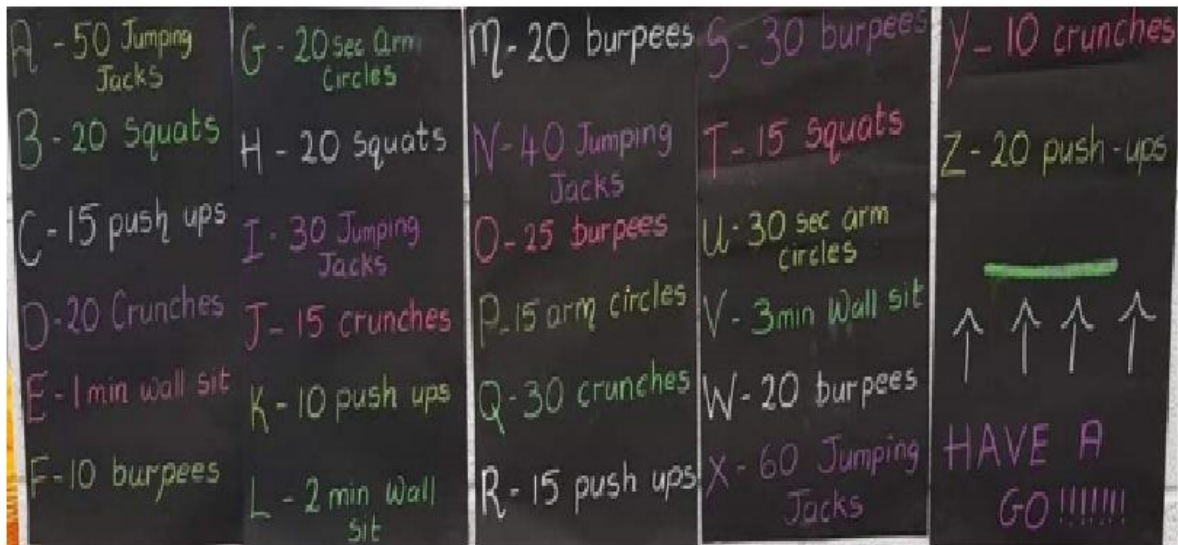 A - 50 Jumping
Jacks
B - 20 Squats
C - 15 push ups
D - 20 Crunches
E - 1 min wall sit
F - 10 burpees
G - 20 sec Arm
Circles
H - 20 squats
I - 30 Jumping
Jacks
J - 15 crunches
K - 10 push ups
L - 2 min Wall
sit
M - 20 burpees
N - 40 Jumping
Jacks
O - 25 burpees
P - 15 arm circles
Q - 30 crunches
R - 15 push ups
S - 30 burpees
T - 15 Squats
U - 30 sec arm
circles
V - 3min Wall sit
W - 20 burpees
X - 60 Jumping
Jacks
Y - 10 crunches
Z - 20 push-ups
HAVE A
GO !!!!!!!